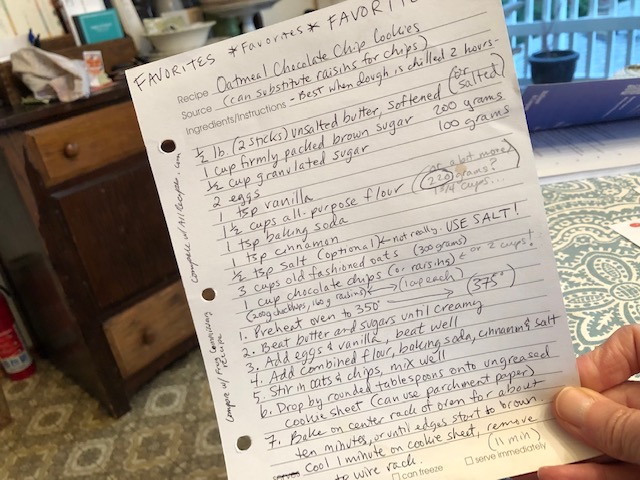 FAVORITES *Favorites* FAVORITE
Recipe Oatmeal Chocolate Chip Cookies
Source (can substitute raisins for chips)
Ingredients/Instructions - Best when dough is chilled 2 hours -
1/2 lb. (2 sticks) unsalted butter, softened (or salted)
1 cup firmly packed brown sugar 200 grams
1/2 cup granulated sugar 100 grams
2 eggs
1 tsp vanilla or a bit more
1 1/2 cups all-purpose flour (220 grams?
1 3/4 cups...
1 tsp baking soda
1 tsp cinnamon
1/2 tsp salt (optional) ← not really. USE SALT!
3 cups old fashioned oats (300 grams)
1 cup chocolate chips (or raisins) ← or 2 cups!
(200g choc chips, 160 g raisins) (1 cup each)
1. Preheat oven to 350° → (375°)
2. Beat butter and sugars until creamy
3. Add eggs & vanilla, beat well
4. Add combined flour, baking soda, cinnamon & salt
5. Stir in oats & chips, mix well
6. Drop by rounded tablespoons onto ungreased
cookie sheet (can use parchment paper)
7. Bake on center rack of oven for about
ten minutes, or until edges start to brown.
Cool 1 minute on cookie sheet, remove (11 min)
to wire rack.
serves
can freeze
serve immediately
Compare w/ Allrecipes.com
Compare w/ recipe